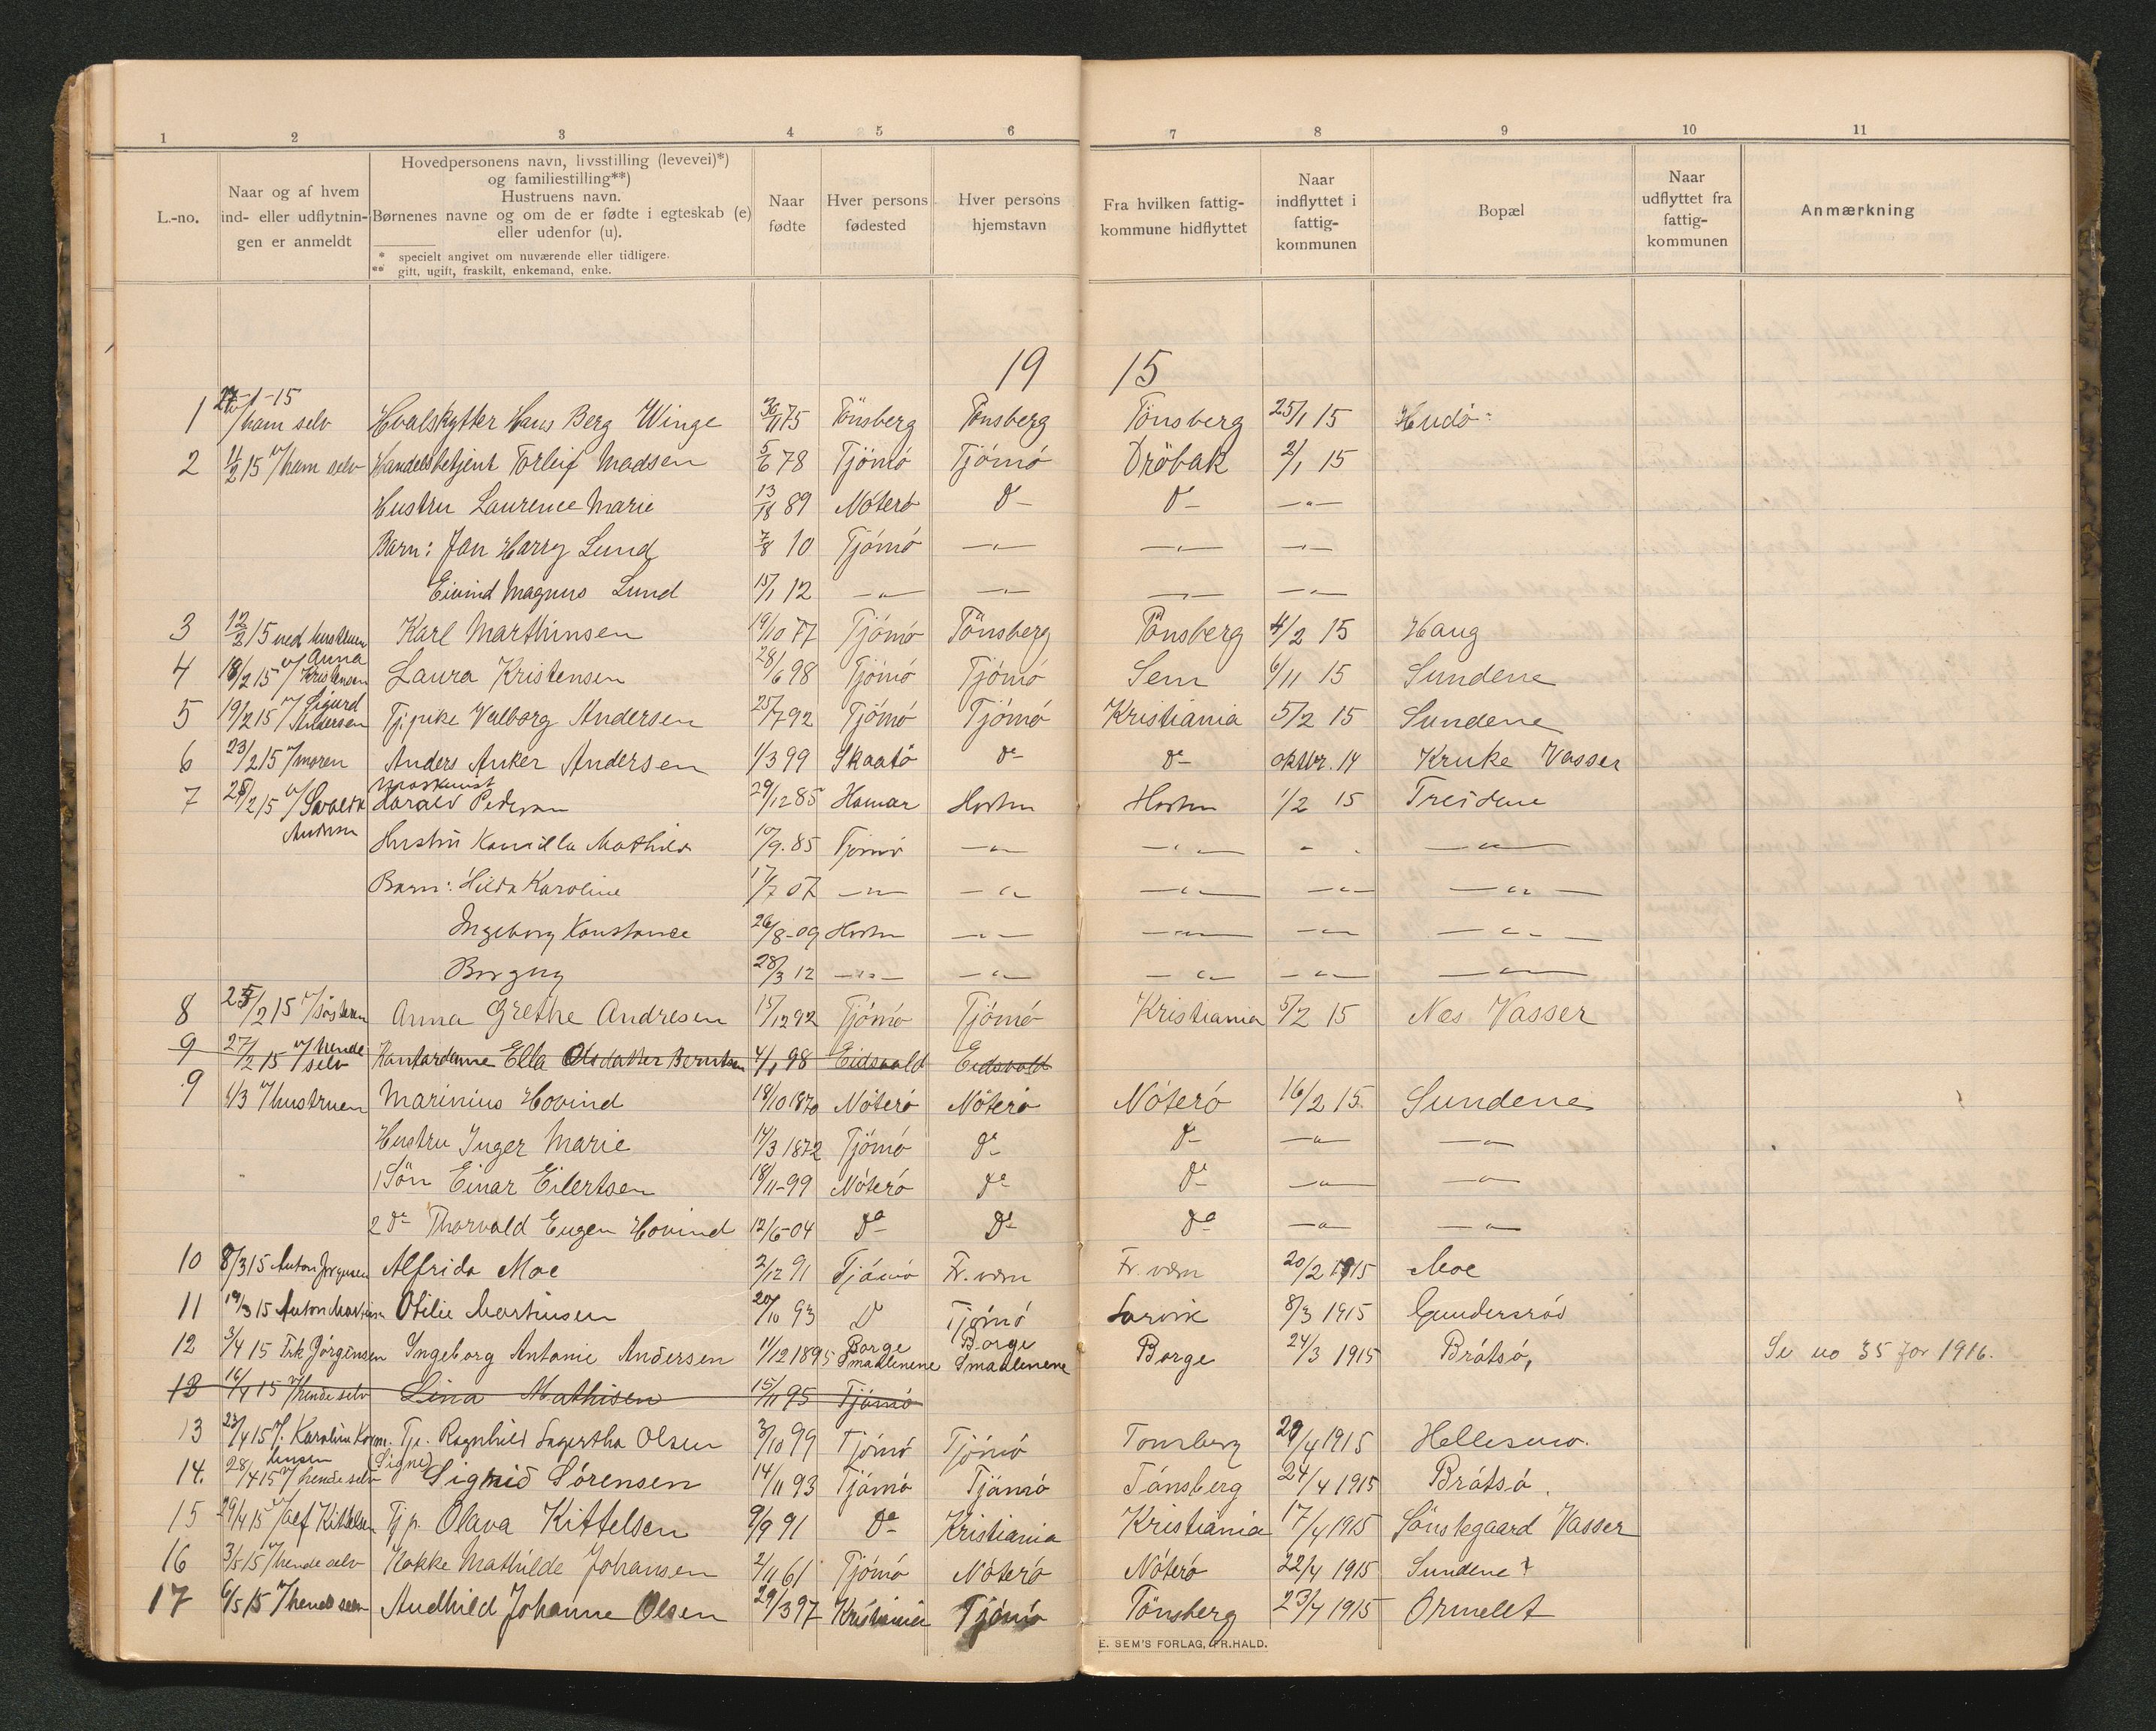 1 2 3 4 5 6 7 8 9 10 11
L.-no.
Naar og af hvem
ind- eller udflytnin-
gen er anmeldt
Hovedpersonens navn, livsstilling (levevei)*)
og familiestilling**)
Hustruens navn.
Børnenes navne og om de er fødte i egteskab (e)
eller udenfor (u).
* specielt angivet om nuværende eller tidligere.
** gift, ugift, fraskilt, enkemand, enke.
Naar
fødte
Hver persons
fødested
Hver persons
hjemstavn
Fra hvilken fattig-
kommune hidflyttet
Naar
indflyttet i
fattig-
kommunen
Bopæl
Naar
udflyttet fra
fattig-
kommunen
Anmærkning
19 15
1 -1-15 / ham selv Hvalskytter Hans Berg Winge 30/11 75 Tönsberg Tönsberg Tönsberg 25/1 15 Hudö
2 11/2 15 v/ ham selv Handelsbetjent Torleif Madsen 5/6 78 Tjömö Tjömö Dröbak 2/1 15
Hustru Laurence Marie 89 Nöterö do do —"—
Barn: Jan Harry Lund 7/8 10 Tjömö —"— —"— —"—
Eivind Magnus Lund 15/1 12 —"— —"— —"— —"—
3 12/2 15 ved hustruen Karl Marthinsen 19/10 77 Tjömö Tönsberg Tönsberg 4/2 15 Haug
4 18/2 15 v/ Anna Kristensen Laura Kristensen 28/6 98 Tjömö Tjömö Sem 6/11 15 Sundene
5 19/2 15 v/ Sigurd Andersen Tj.pike Valborg Andersen 25/7 92 Tjömö Tjömö Kristiania 5/2 15 Sundene
6 23/2 15 v/ moren Anders Anker Andersen 1/3 99 Skaatö do do oktbr. 14 Kruke Vasser
7 25/2 15 v/ Andersen Maskinist Harald Pedersen 29/12 85 Hamar Horten Horten 1/2 15 Treidene
Hustru Kamilla Mathilde 10/9. 85 Tjömö —"— —"— " —"—
Barn: Hilda Karoline 17/7 07 —"— —"— —"— —"— —"—
Ingeborg Konstance 26/8-09 Horten —"— —"— —"— —"—
Borgny 28/3 12 —"— —"— —"— —"— —"—
8 25/2 15 v/ söstren Anna Grethe Andresen 15/12 92 Tjömö Tjömö Kristiania 5/2 15 Nes Vasser
9 27/2 15 v/ hende selv Kontordame Ella Olsdatter Berntsen 4/1 98 Eidsvold Eidsvold
9 1/3 v/ hustruen Marinius Hovind 18/10 1870 Nöterö Nöterö Nöterö 16/2 15 Sundene
Hustru Inger Marie 14/3 1872 Tjömö do do —"— —"—
1 Sön Einar Eilertsen 18/11-99 Nöterö do do —"— —"—
2 do Thorvald Eugen Hovind 12/6-04 do do do —"— —"—
10 8/3 15 Anton Jörgensen Alfrida Moe 2/12 91 Tjömö Fr. værn Fr. værn 20/2 1915 Moe
11 19/3 15 Anton Martinsen Otilie Martinsen 20/10 93 D Tjömö Larvik 8/3 1915 Gundersröd
12 3/4 15 Frk Jörgensen Ingeborg Antonie Andersen 11/12 1895 Borge Smaalenene Borge Smaalenene Borge 24/3 1915 Bråtsö, Se no 35 for 1916.
13 16/4 15 v/ hende selv Lina Mathisen 15/11 95 Tjömö
13 23/4 15 v/. Karoline Tje. Ragnhild Lagertha Olsen 3/10 99 Tjömö Tjömö Tonsberg 20/4 1915 Hellesmo.
14. 28/4 15 v/ hende selv (Signe) Sigrid Sörensen 14/11 93 Tjömö Tjömö Tönsberg 24/4 1915 Bråtsö.
15 29/4 15 v/ Alf Kittelsen Tj p. Olava Kittelsen 9/9 91 do Kristiania Kristiania 17/4 1915 Sönstegaard Vasser
16 3/5 15 v/ hende selv Kokke Mathilde Johansen 2/11 61 Tjömö Nöterö Nöterö 22/4 1915 Sundene
17 6/5 15 v/ hende selv Audhild Johanne Olsen 29/3 97 Kristiania Tjömö Tönsberg 23/4 1915 Ormelet
E. SEM'S FORLAG, FR.HALD.